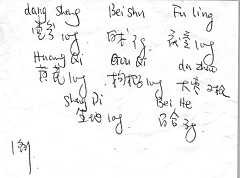 dang sheng Bei shu Fu ling
党参 10g 白术 10g 茯苓 10g
Huang Qi Gou Qi da zhao
黄芪 10g 枸杞 10g 大枣 2枚
Sheng Di Bei He
生地 10g 百合
1剂